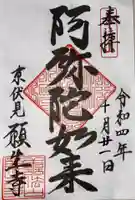 奉拝
令和四年
十月廿一日
阿弥陀如来
京伏見
願生寺